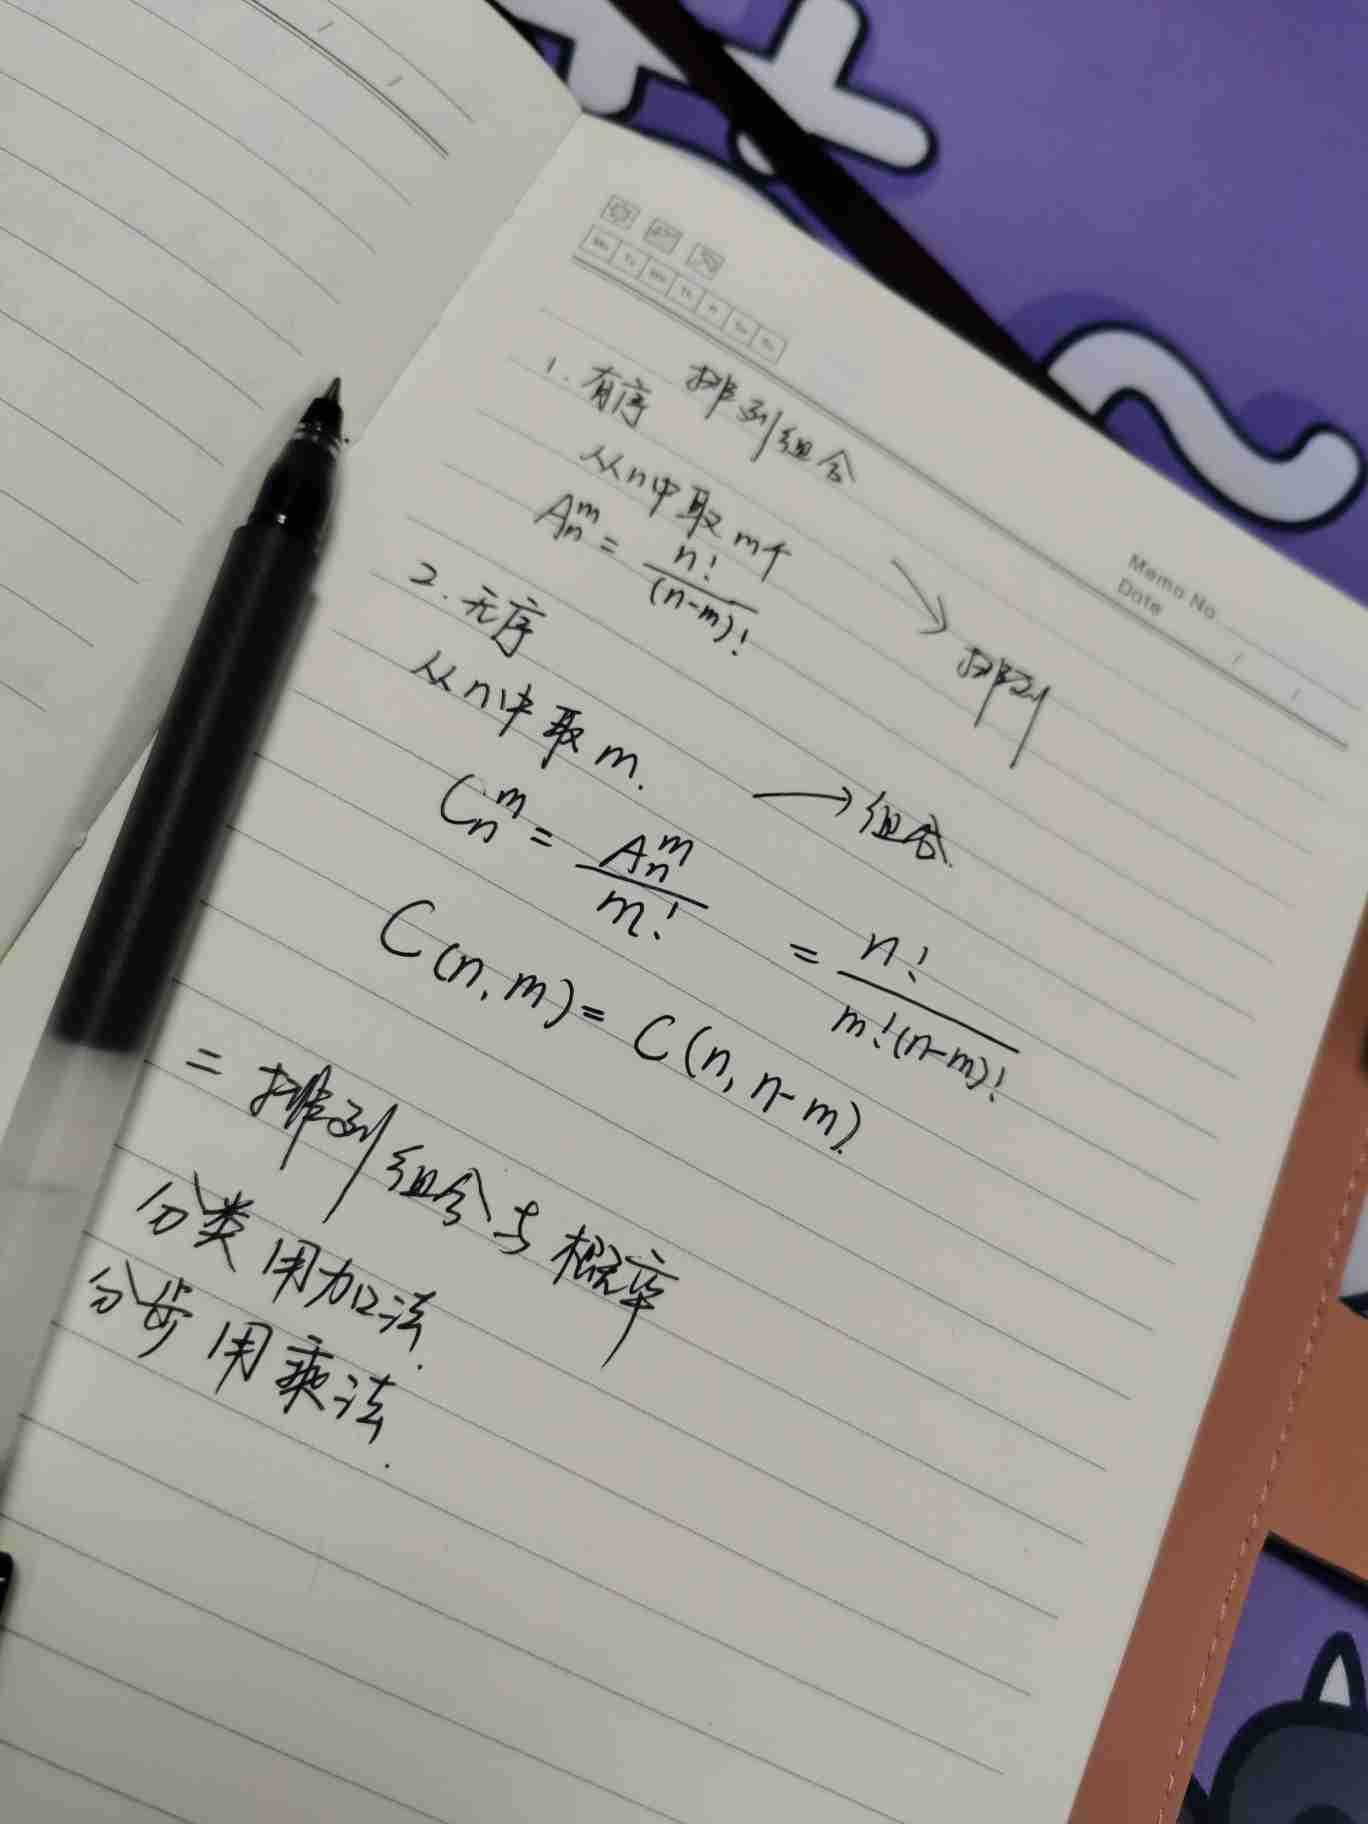 排列组合
1. 有序
从n中取m个 → 排列
A_n^m = n!/(n-m)!
2. 无序
从n中取m. → 组合
C_n^m = A_n^m/m! = n!/m!(n-m)!
C(n,m) = C(n,n-m).
二 排列组合与概率
分类用加法.
分步用乘法.
Memo No.
Date / /